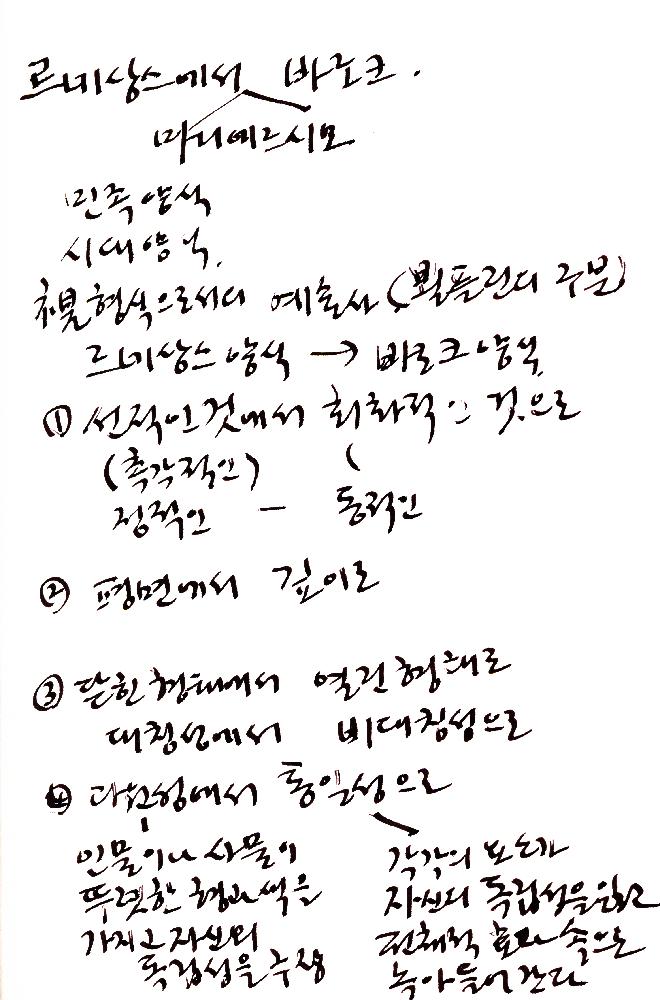 르네상스에서 바로크.
마니에르시모
민족양식
시대양식.
형식으로서의 예술사 (뵐플린의 구분)
르네상스양식 → 바로크양식.
① 선적인것에서 회화적인 것으로
(촉각적인)
정적인 - 동적인
② 평면에서 깊이로
③ 닫힌형태에서 열린형태로
대칭성에서 비대칭성으로
④ 다원성에서 통일성으로
인물이나 사물이 각각의 요소가
뚜렷한 형과색을 자신의 독립성을잃고
가지고 자신의 전체적 효과속으로
독립성을 주장 녹아들어간다